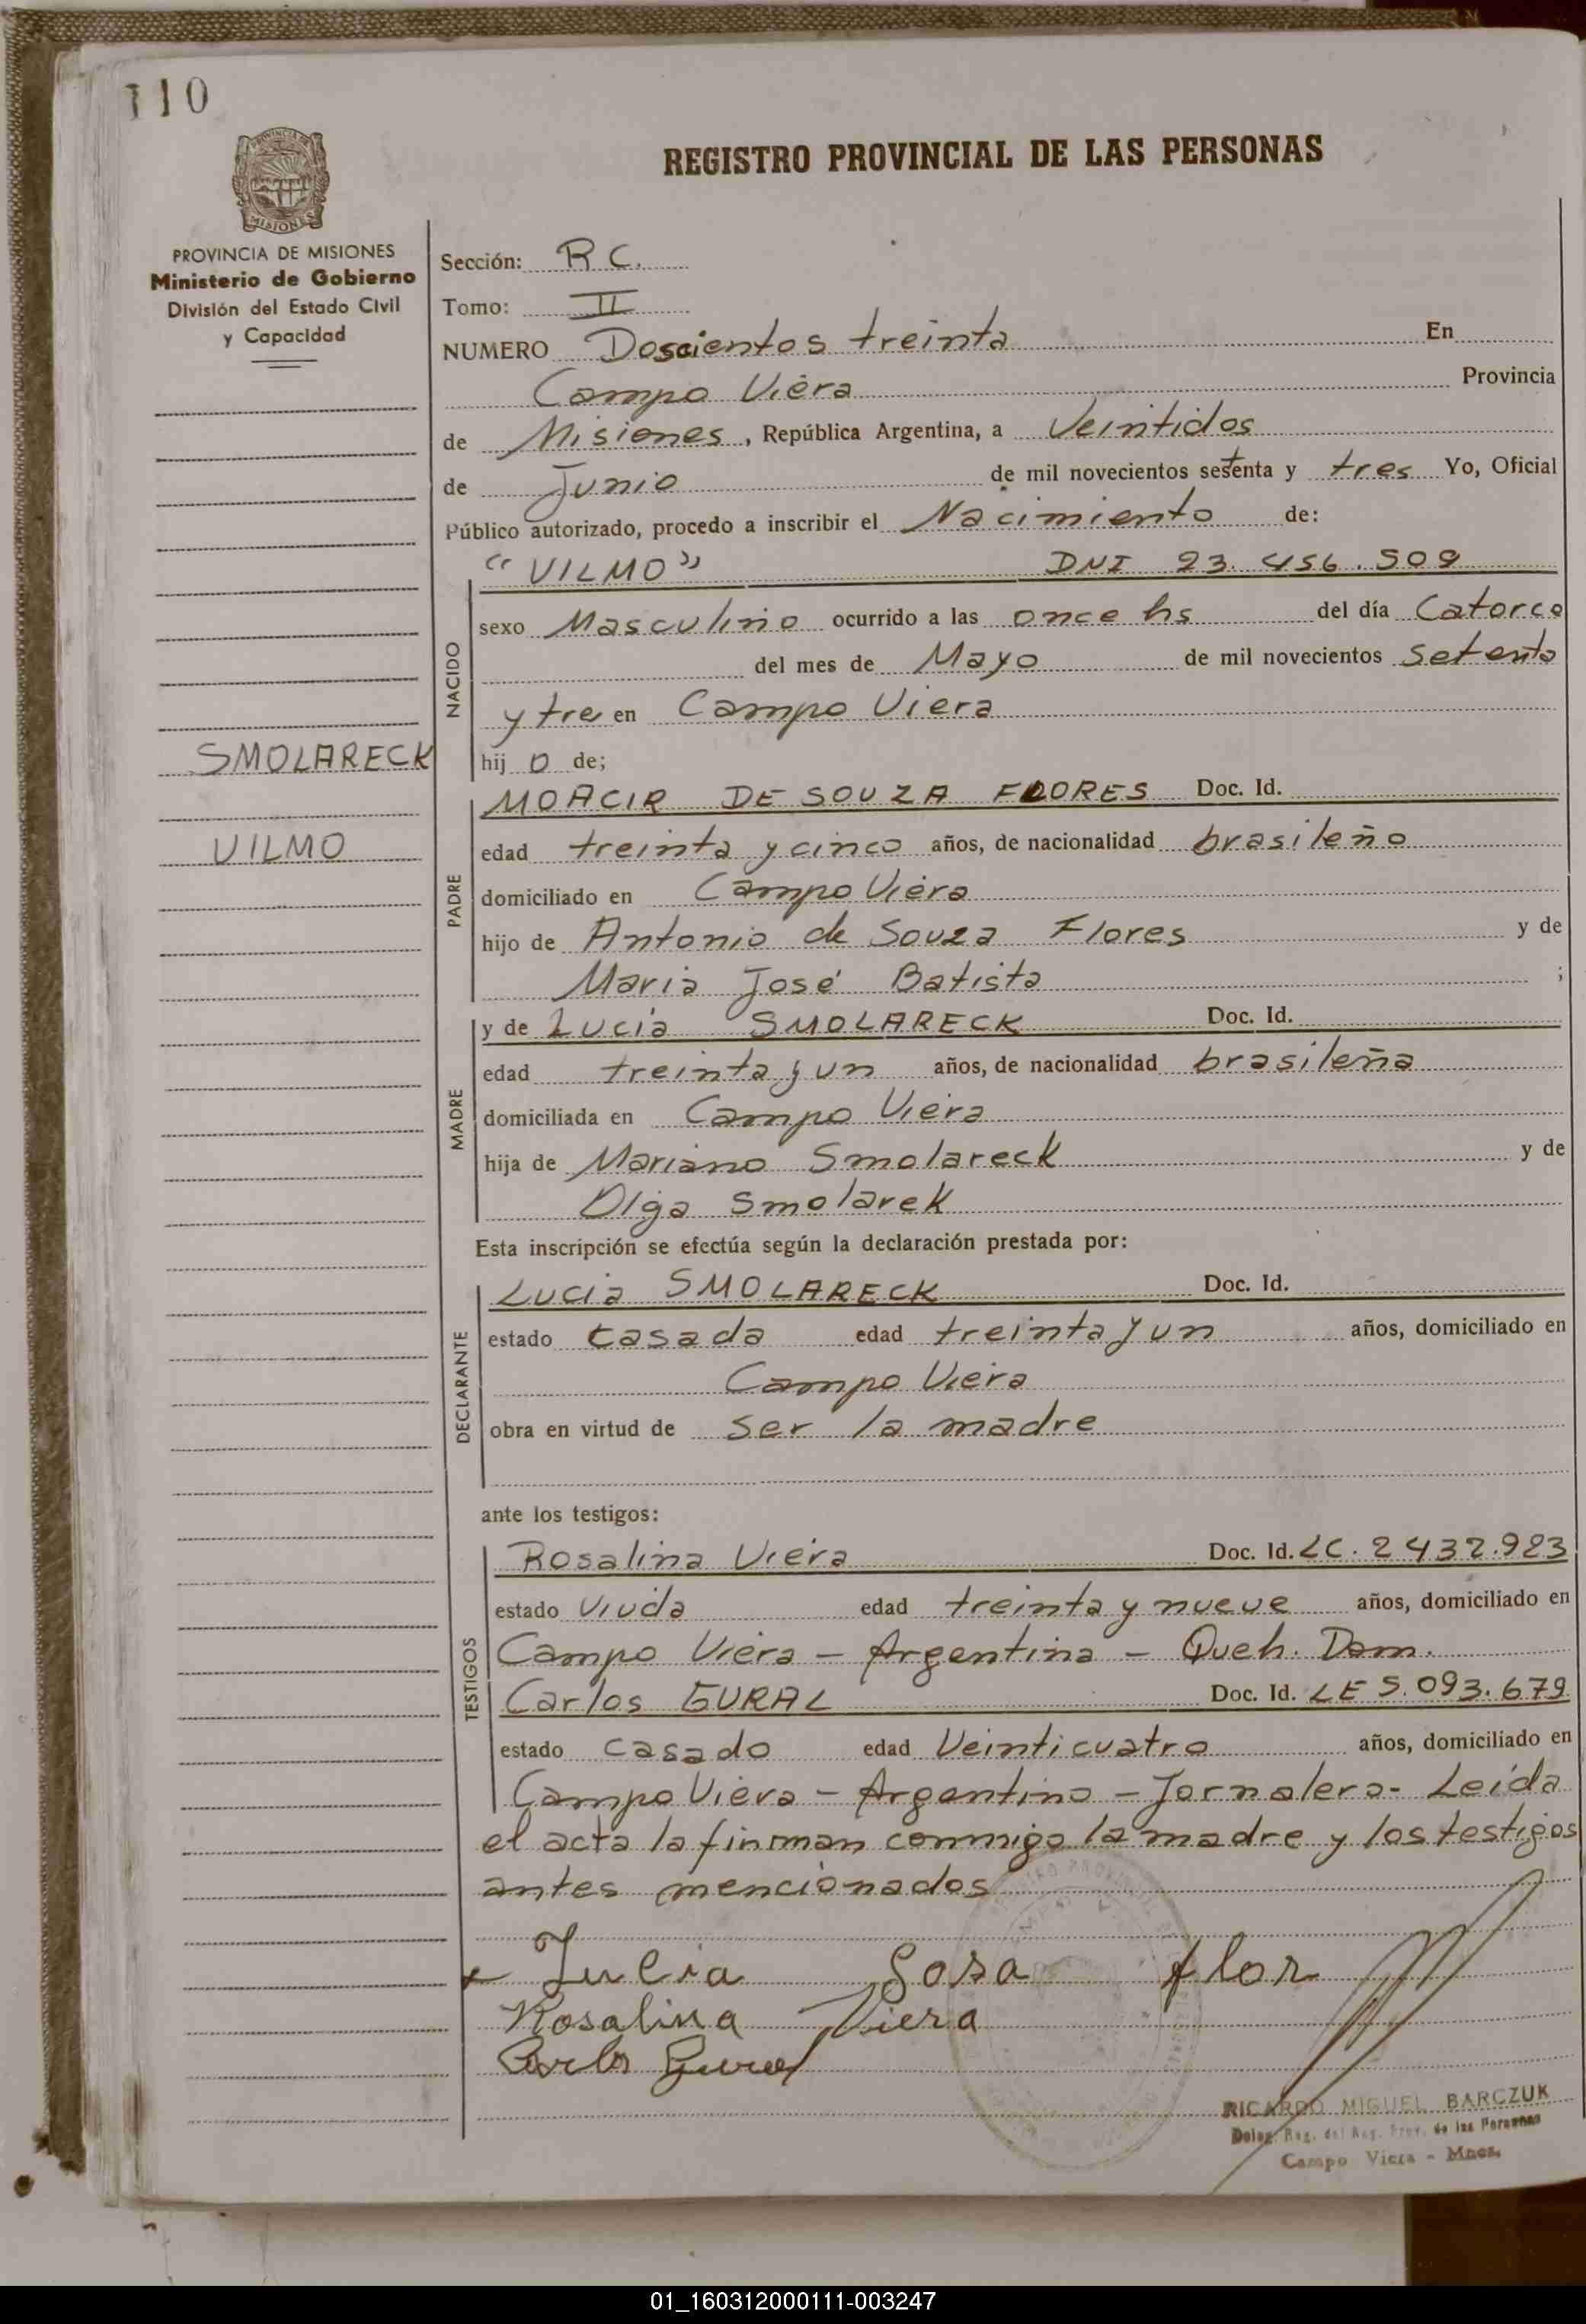 110
PROVINCIA DE
MISIONES
REGISTRO PROVINCIAL DE LAS PERSONAS
PROVINCIA DE MISIONES
Ministerio de Gobierno
División del Estado Civil
y Capacidad
SMOLARECK
VILMO
Sección: R C.
Tomo: II
NUMERO Doscientos treinta En
Campo Viera Provincia
de Misiones, República Argentina, a Veintidos
de Junio de mil novecientos setenta y tres Yo, Oficial
Público autorizado, procedo a inscribir el Nacimiento de:
NACIDO
"VILMO" DNI 23.456.509
sexo Masculino ocurrido a las once hs del día Catorce
del mes de Mayo de mil novecientos setenta
y tre en Campo Viera
hij o de;
PADRE
MOACIR DE SOUZA FLORES Doc. Id.
edad treinta y cinco años, de nacionalidad brasileño
domiciliado en Campo Viera
hijo de Antonio de Souza Flores y de
Maria José Batista ;
MADRE
y de Lucia SMOLARECK Doc. Id.
edad treinta y un años, de nacionalidad brasileña
domiciliada en Campo Viera
hija de Mariano Smolareck y de
Olga Smolarek
Esta inscripción se efectúa según la declaración prestada por:
DECLARANTE
Lucia SMOLARECK Doc. Id.
estado casada edad treinta y un años, domiciliado en
Campo Viera
obra en virtud de ser la madre
ante los testigos:
TESTIGOS
Rosalina Viera Doc. Id. LC. 2432.923
estado Viuda edad treinta y nueve años, domiciliado en
Campo Viera - Argentina - Queh. Dom.
Carlos GURAL Doc. Id. LE 5.093.679
estado casado edad Veinticuatro años, domiciliado en
Campo Viera - Argentino - Jornalero - Leida
el acta la finrman conmigo la madre y los testigos
antes mencionados
Lucia Sosa flor
Rosalina Viera
Carlos Gural
RICARDO MIGUEL BARCZUK
Deleg. Reg. del Reg. Prov. de las Personas
Campo Viera - Mnes.
01_160312000111-003247